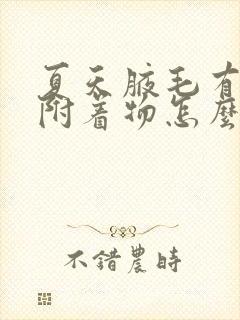 夏天腋毛有
附着物怎麼
不錯農時